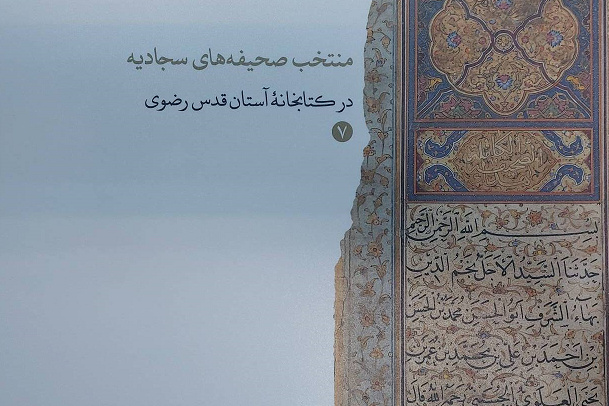 منتخب صحیفه‌های سجادیه
در کتابخانهٔ آستان قدس رضوی
۷
الصحیفة الکاملة
بسم الله الرحمن الرحیم
حدثنا السید الاجل نجم الدین
بهاء الشرف ابو الحسن محمد بن الحسن
بن احمد بن علی بن محمد بن عمر بن
یحیی العلوی الحسینی رحمه الله قال